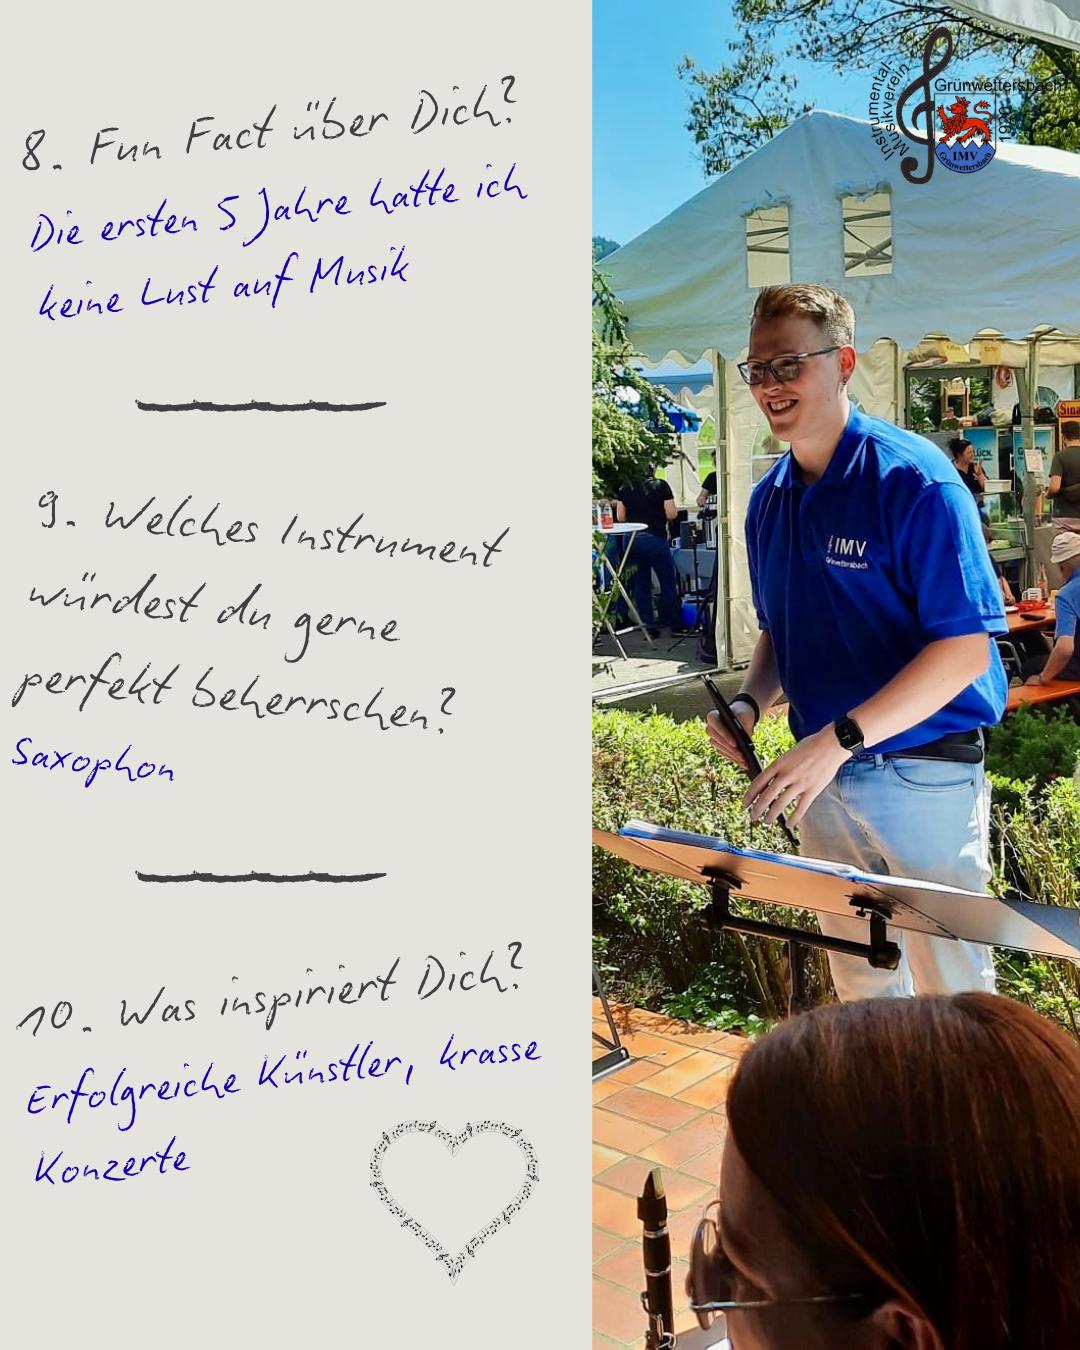 8. Fun Fact über Dich?
Die ersten 5 Jahre hatte ich
keine Lust auf Musik
9. Welches Instrument
würdest du gerne
perfekt beherrschen?
Saxophon
10. Was inspiriert Dich?
Erfolgreiche Künstler, krasse
Konzerte
Instrumental-
Musikverein
Grünwettersbach
1920
IMV
Grünwettersbach
IMV
Grünwettersbach